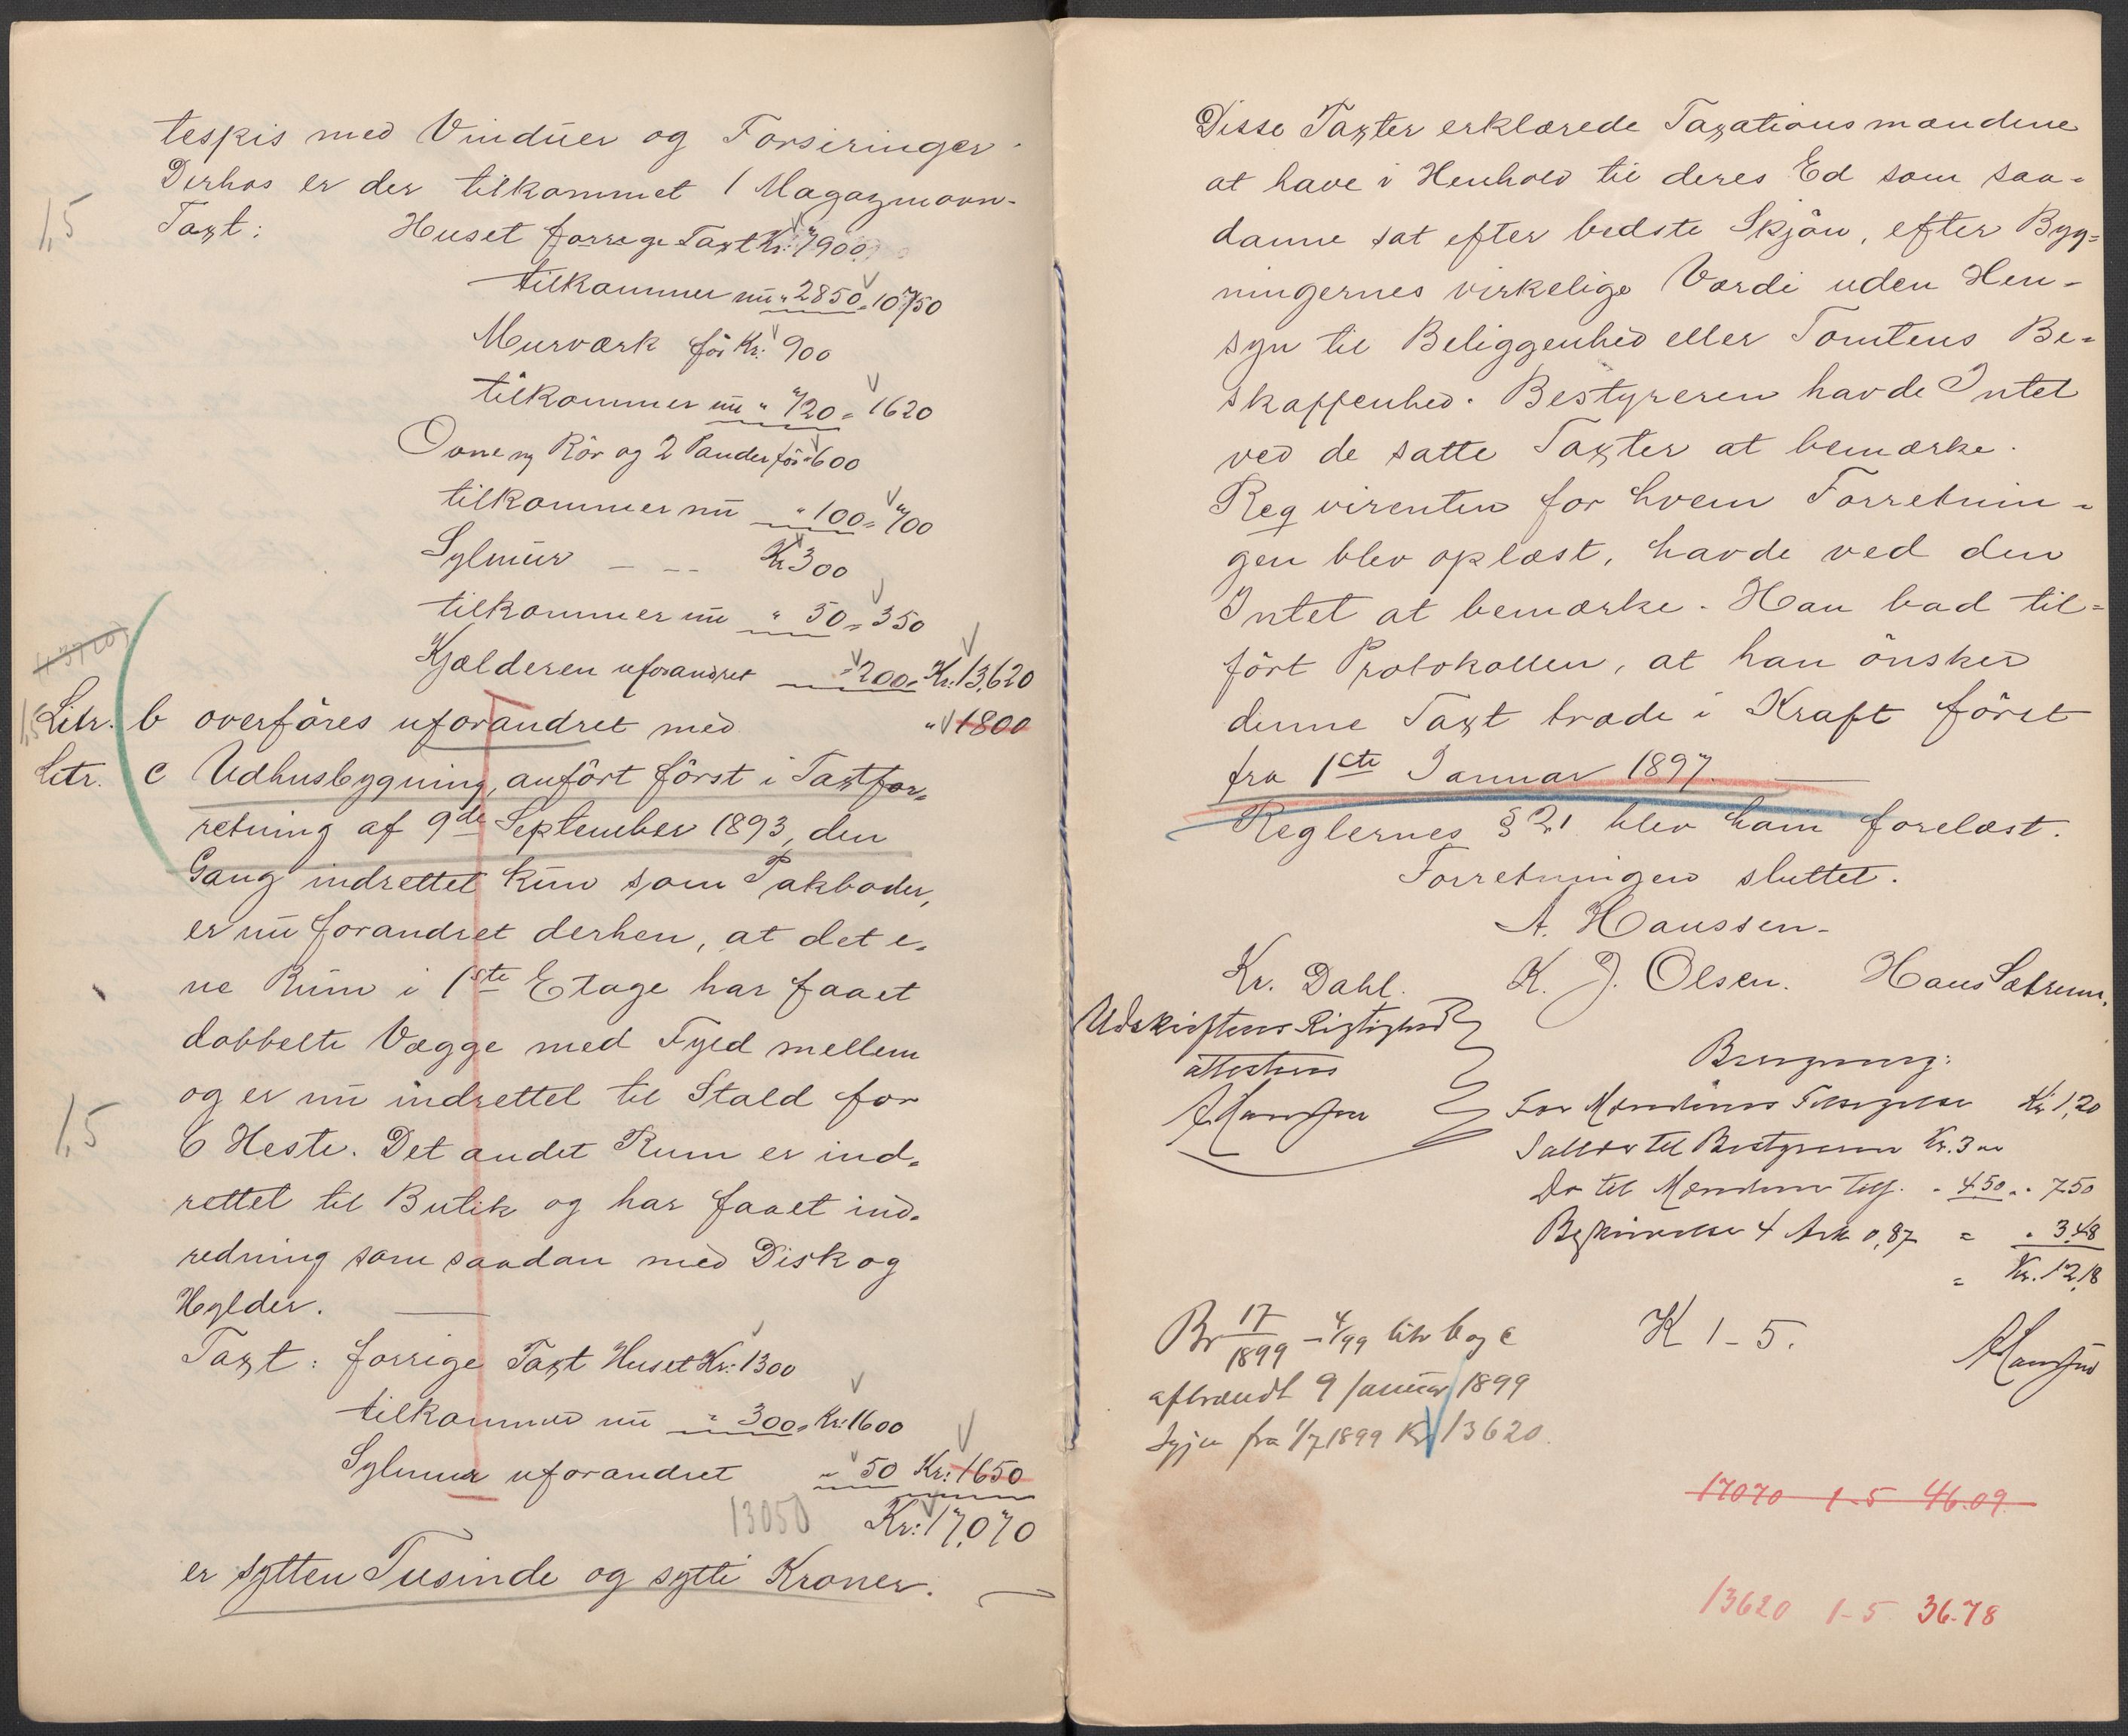 tespis med Vinduer og Forsiringer.
Derhos er der tilkommet 1 Magazinovn.
1,5
Taxt: Huset forrige Taxt Kr: 7900
tilkommer nu " 2850 = 10750
Murværk før Kr: 900
tilkommer nu " 720 = 1620
Ovne og Rör og 2 Pander før " 600
tilkommer nu " 100 = 700
Sylmur — — Kr 300
tilkommer nu " 50 = 350
Kjælderen uforandret " 200 = Kr: 13,620
1,5 Litr. b overföres uforandret med " 1800
Litr. c Udhusbygning, anført først i Taxtfor-
retning af 9de September 1893, den
Gang indrettet kun som Pakboder,
er nu forandret derhen, at det e-
ne Rum i 1ste Etage har faaet
dobbelte Vægge med Fyld mellem
og er nu indrettet til Stald for
1,5
6 Heste. Det andet Rum er ind-
rettet til Butik og har faaet ind-
redning som saadan med Disk og
Hylder.
Taxt: forrige Taxt Huset Kr: 1300
tilkommer nu " 300 = Kr: 1600
Sylmur uforandret " 50 Kr: 1650
13050 Kr: 17,070
er sytten Tusinde og sytti Kroner.
Disse Taxter erklærede Taxationsmændene
at have i Henhold til deres Ed som saa-
danne sat efter bedste Skjön, efter Byg-
ningernes virkelige Værdi uden Hen-
syn til Beliggenhed eller Tomtens Be-
skaffenhed. Bestyreren havde Intet
ved de satte Taxter at bemærke.
Reqvirenten for hvem Forretnin-
gen blev oplæst, havde ved den
Intet at bemærke. Han bad til-
ført Protokollen, at han önsker
denne Taxt træde i Kraft först
fra 1cte Januar 1897.
Reglernes § 21 blev ham forelæst.
Forretningen sluttet.
A. Hanssen.
Kr. Dahl. K. J. Olsen. Hans Sætrum.
Udskriftens Rigtighed
attesteres
AHanssen
Beregning:
For Mændenes Tilsigelse Kr 1,20
Salær til Bestyreren Kr. 3 "
Do til Mændene Tils. " 450 " 750
Beskrivelse 4 Ark 0,87 = " 3,48
= Kr. 12,18
AHanssen
Br 17/1899 – 4/99 litr b og c
K 1-5.
afbrændt 9 Januar 1899
fra 1/7 1899 Kr 13620.
17070 1-5 46.09
13620 1-5 36.78